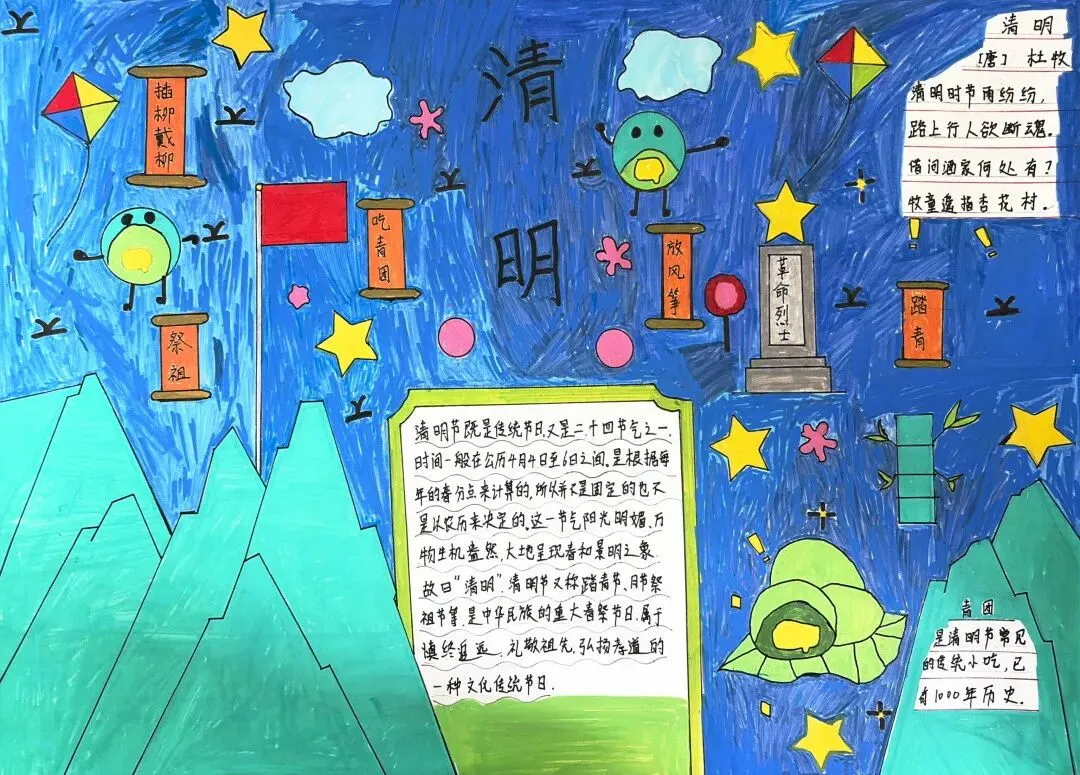 清明
清明
[唐] 杜牧
清明时节雨纷纷，
路上行人欲断魂。
借问酒家何处有？
牧童遥指杏花村。
插柳戴柳
吃青团
放风筝
祭祖
革命烈士
踏青
清明节既是传统节日又是二十四节气之一，
时间一般在公历4月4日至6日之间。是根据每
年的春分点来计算的，所以并不是固定的也不
是以农历来决定的。这一节气阳光明媚、万
物生机盎然，大地呈现春和景明之象
故曰“清明”。清明节又称踏青节、月节祭
祖节等，是中华民族的重大春祭节日。属于
慎终追远、礼敬祖先，弘扬孝道的
一种文化传统节日。
青团
是清明节常见
的传统小吃，已
有1000年历史.